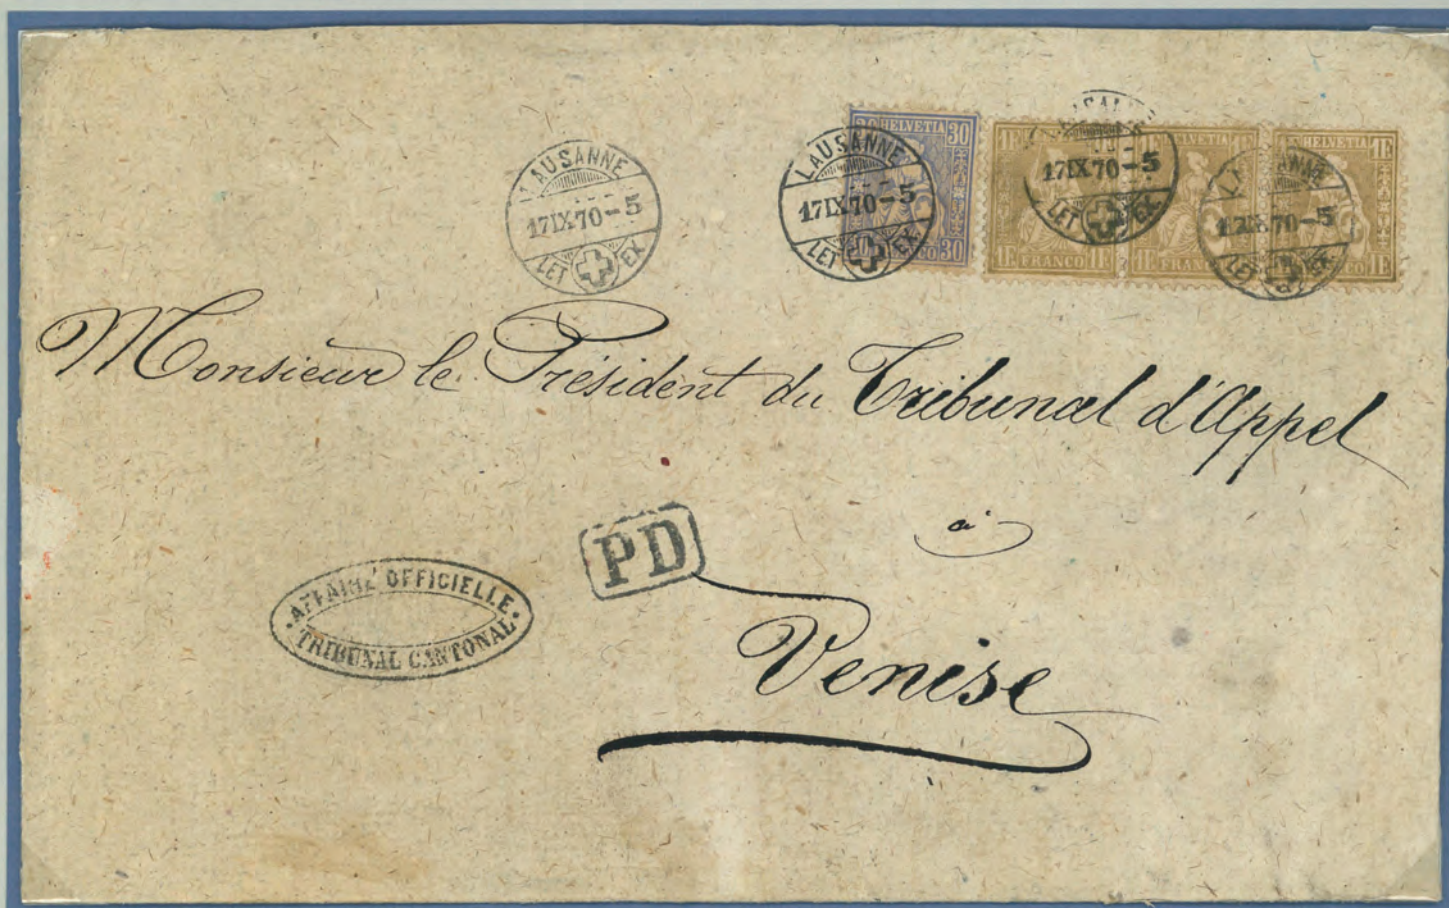 LAUSANNE
17 IX 70-5
LET EX
LAUSANNE
17 IX 70-5
LET EX
30 HELVETIA 30
30 FRANCO 30
17 IX 70-5
LET EX
1F HELVETIA 1F
1F FRANCO 1F
LAUSANNE
17 IX 70-5
LET EX
HELVETIA 1F
1F
Monsieur le Président du Tribunal d'Appel
à
Venise
PD
AFFAIRE OFFICIELLE
TRIBUNAL CANTONAL